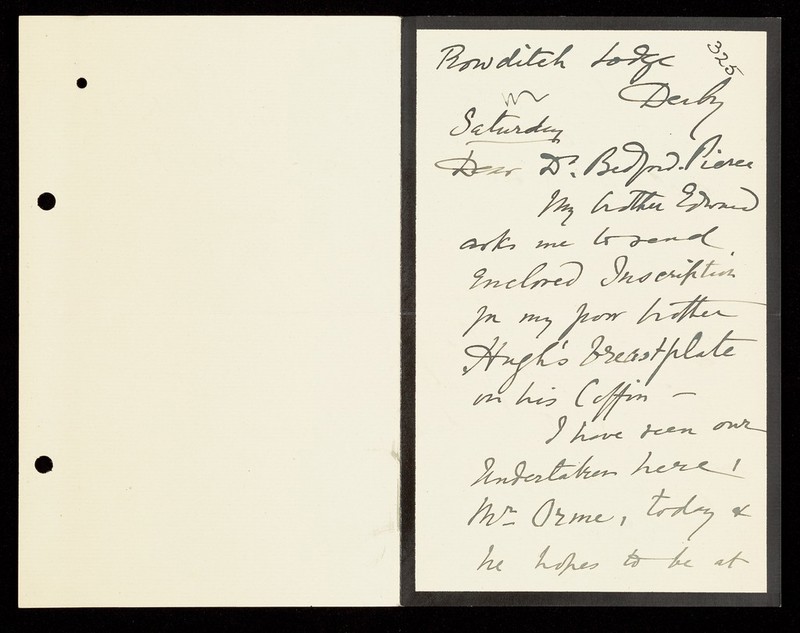 325
Rowditch Lodge
Derby
Saturday
Dear Dr. Bedford-Pierce
My brother Edward
asks me to send
Enclosed Inscription
for my poor brother
Hugh's breastplate
on his Coffin —
I have seen our
Undertaker here,
Mr Orme, today &
he hopes to be at